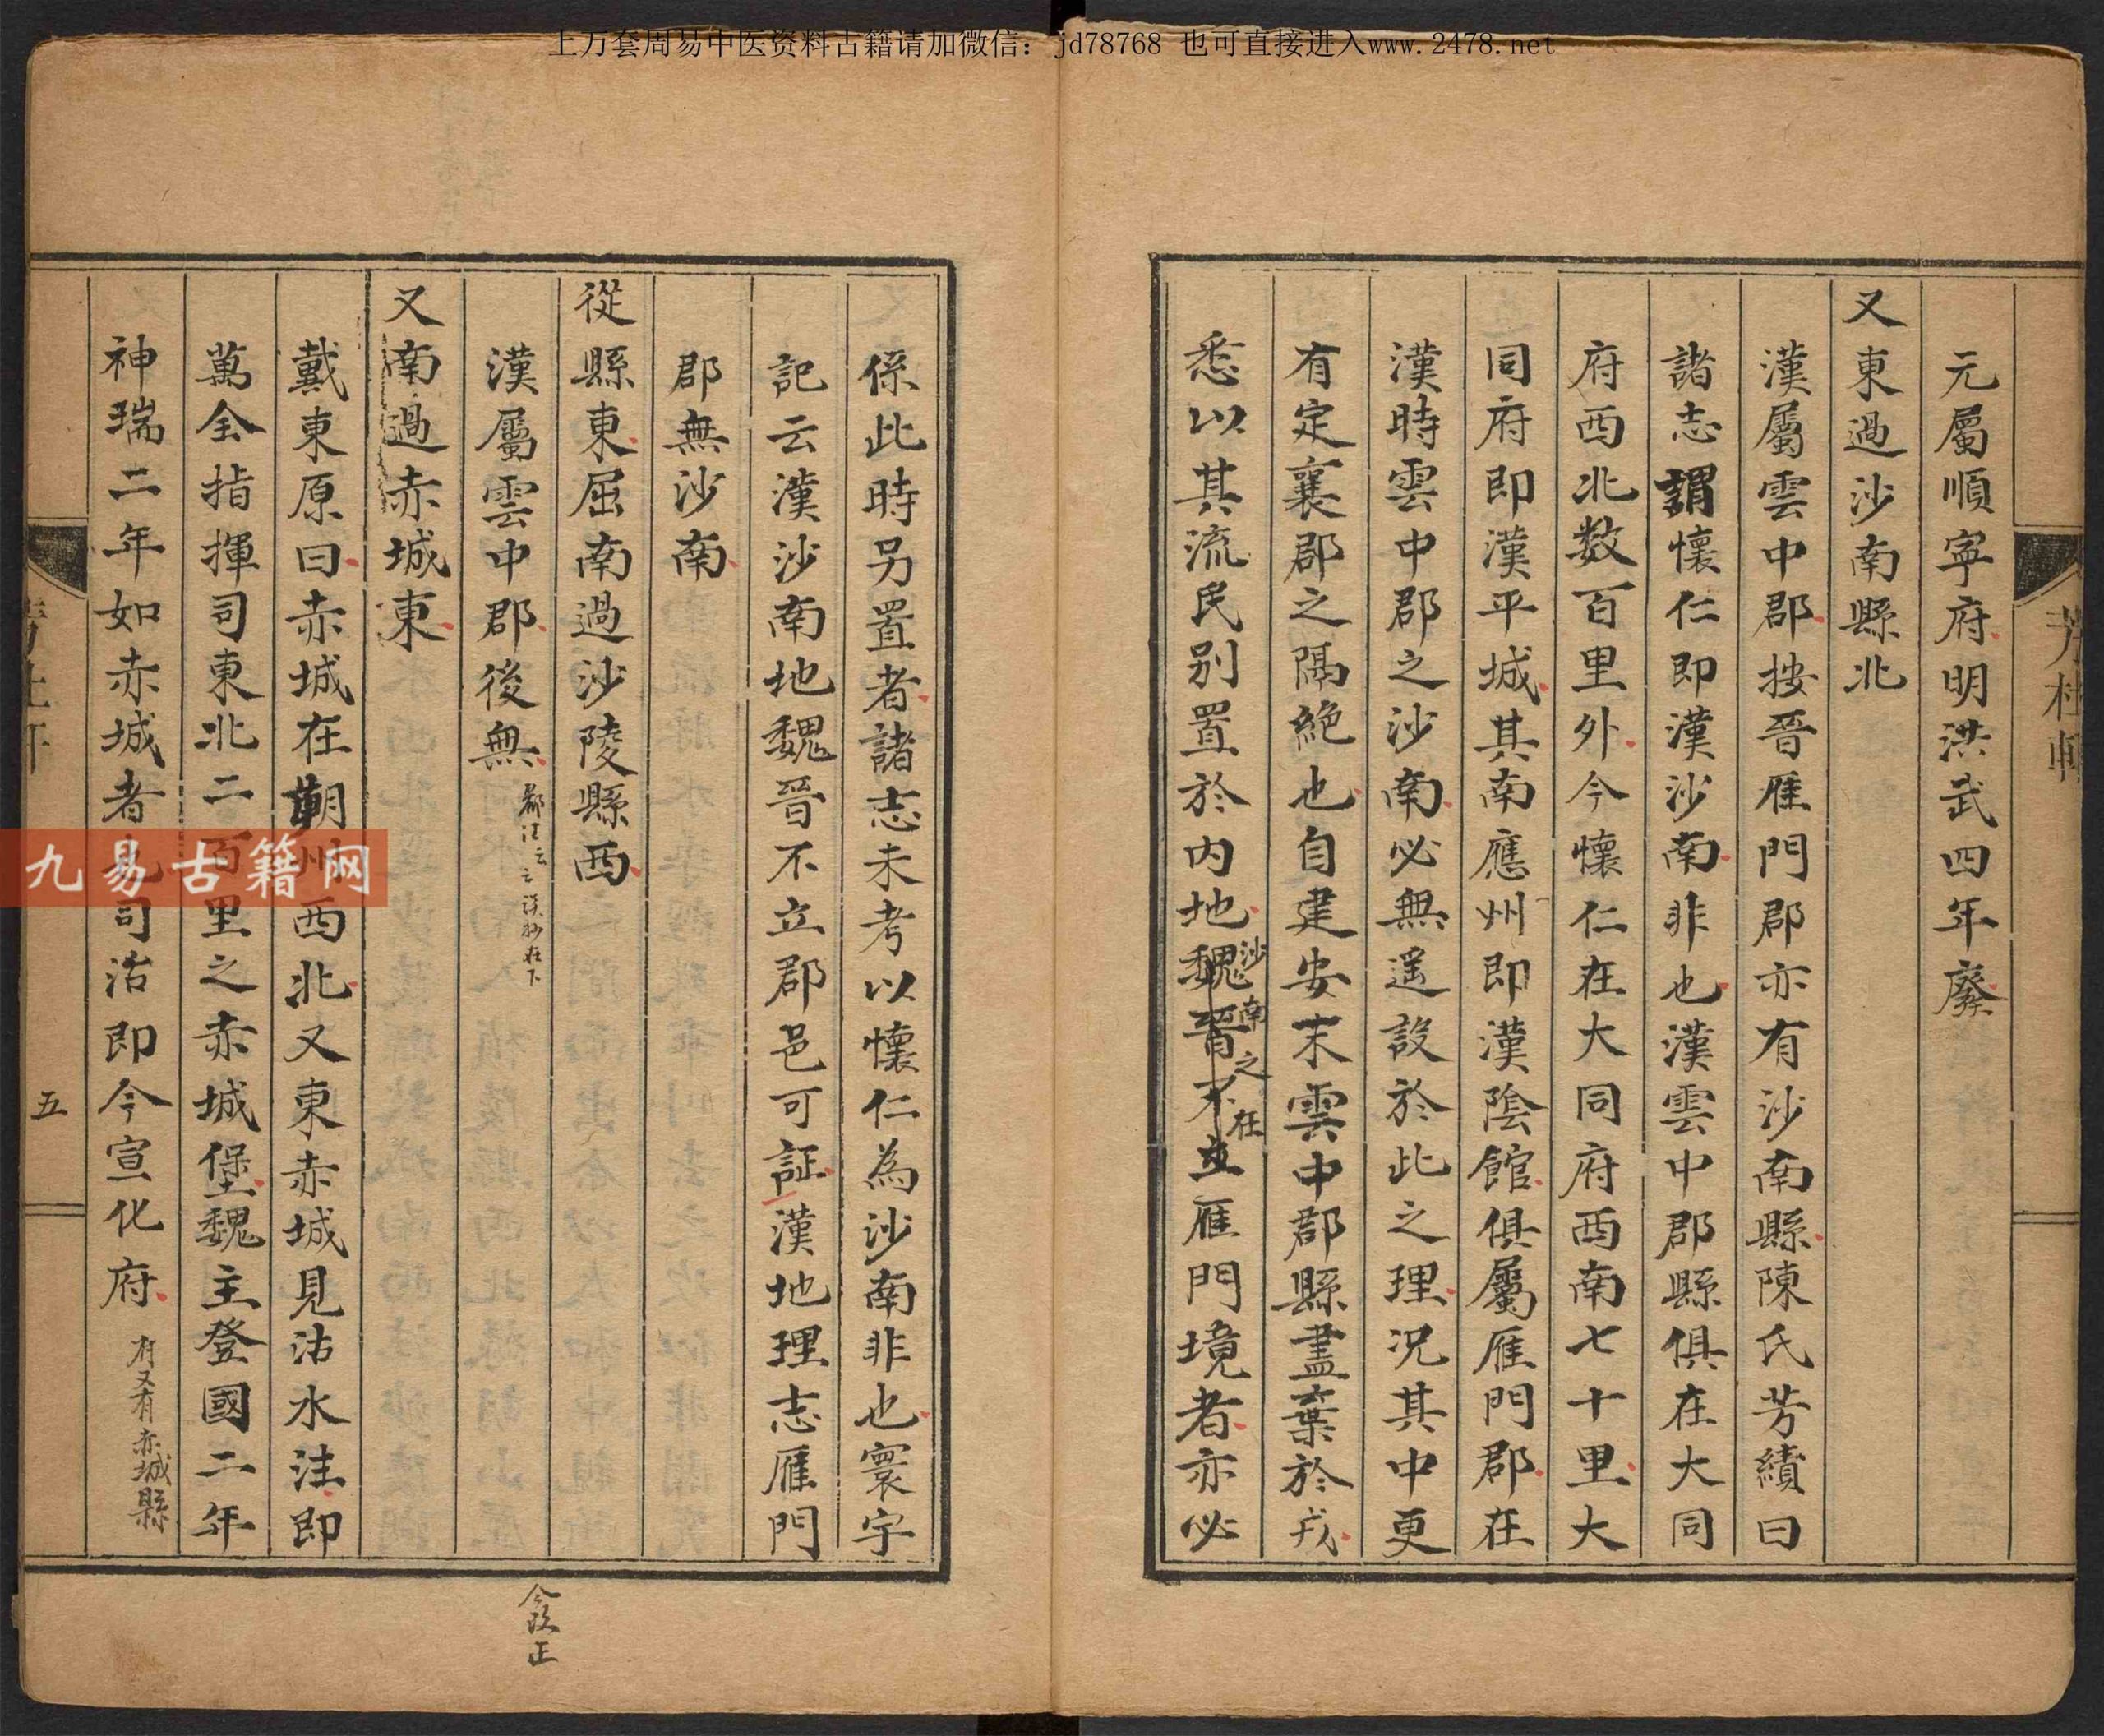 上万套周易中医资料古籍请加微信：jd78768 也可直接进入www.2478.net
元屬順寧府明洪武四年廢
又東過沙南縣北
漢屬雲中郡按晉雁門郡亦有沙南縣陳氏芳績曰
諸志謂懷仁即漢沙南非也漢雲中郡縣俱在大同
府西北数百里外今懷仁在大同府西南七十里大
同府即漢平城其南應州即漢陰館俱屬雁門郡在
漢時雲中郡之沙南必無遥設於此之理况其中更
有定襄郡之隔絶也自建安末雲中郡縣盡棄於戎
悉以其流民别置於内地魏晉不立雁門境者亦必
沙南之在
係此時另置者諸志未考以懷仁為沙南非也寰宇
記云漢沙南地魏晉不立郡邑可証漢地理志雁門
郡無沙南
從縣東屈南過沙陵縣西
漢屬雲中郡後無
又南過赤城東
戴東原曰赤城在朔州西北又東赤城見沽水注即
萬全指揮司東北二百里之赤城堡魏主登國二年
神瑞二年如赤城者九司治即今宣化府
府又有赤城縣
五
芳杜軒
九易古籍网